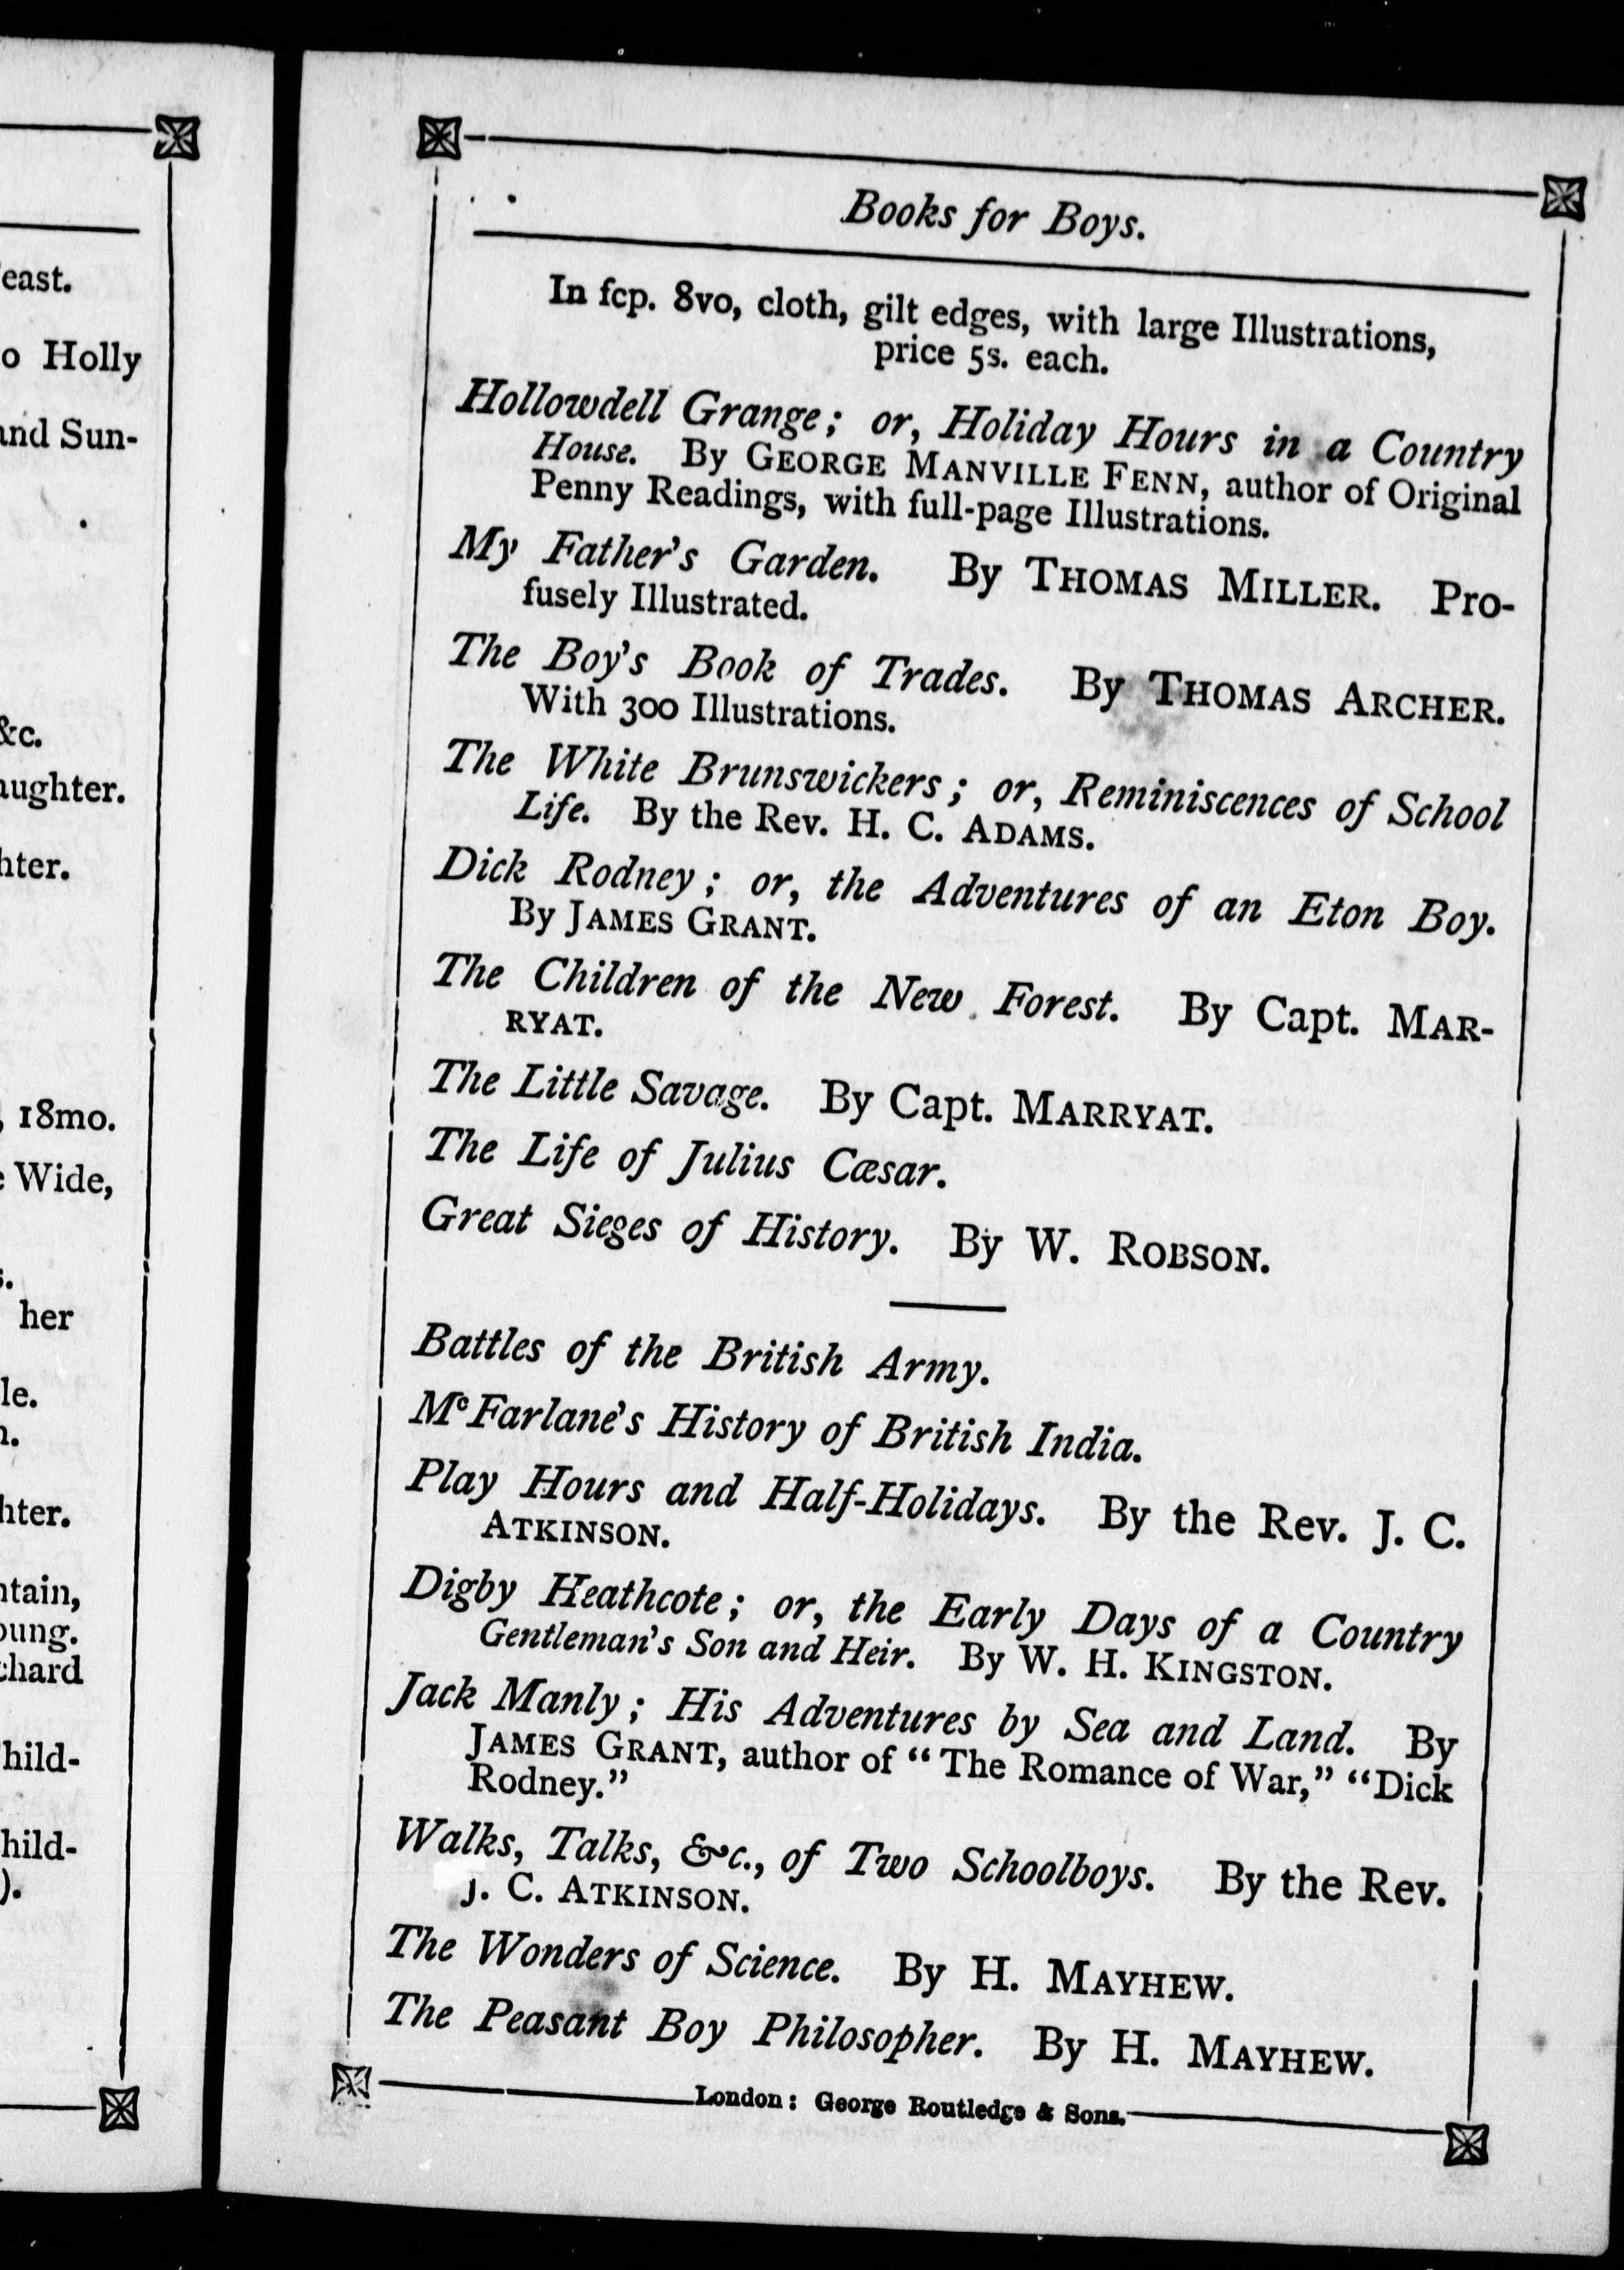 east.
o Holly
and Sun-
&c.
aughter.
hter.
18mo.
Wide,
s.
her
le.
hter.
ntain,
oung.
chard
hild-
hild-
).
Books for Boys.
In fcp. 8vo, cloth, gilt edges, with large Illustrations,
price 5s. each.
Hollowdell Grange; or, Holiday Hours in a Country
House. By GEORGE MANVILLE FENN, author of Original
Penny Readings, with full-page Illustrations.
My Father's Garden. By THOMAS MILLER. Pro-
fusely Illustrated.
The Boy's Book of Trades. By THOMAS ARCHER.
With 300 Illustrations.
The White Brunswickers; or, Reminiscences of School
Life. By the Rev. H. C. ADAMS.
Dick Rodney; or, the Adventures of an Eton Boy.
By JAMES GRANT.
The Children of the New Forest. By Capt. MAR-
RYAT.
The Little Savage. By Capt. MARRYAT.
The Life of Julius Cæsar.
Great Sieges of History. By W. ROBSON.
Battles of the British Army.
McFarlane's History of British India.
Play Hours and Half-Holidays. By the Rev. J. C.
ATKINSON.
Digby Heathcote; or, the Early Days of a Country
Gentleman's Son and Heir. By W. H. KINGSTON.
Jack Manly; His Adventures by Sea and Land. By
JAMES GRANT, author of "The Romance of War," "Dick
Rodney."
Walks, Talks, &c., of Two Schoolboys. By the Rev.
J. C. ATKINSON.
The Wonders of Science. By H. MAYHEW.
The Peasant Boy Philosopher. By H. MAYHEW.
London: George Routledge & Sons.